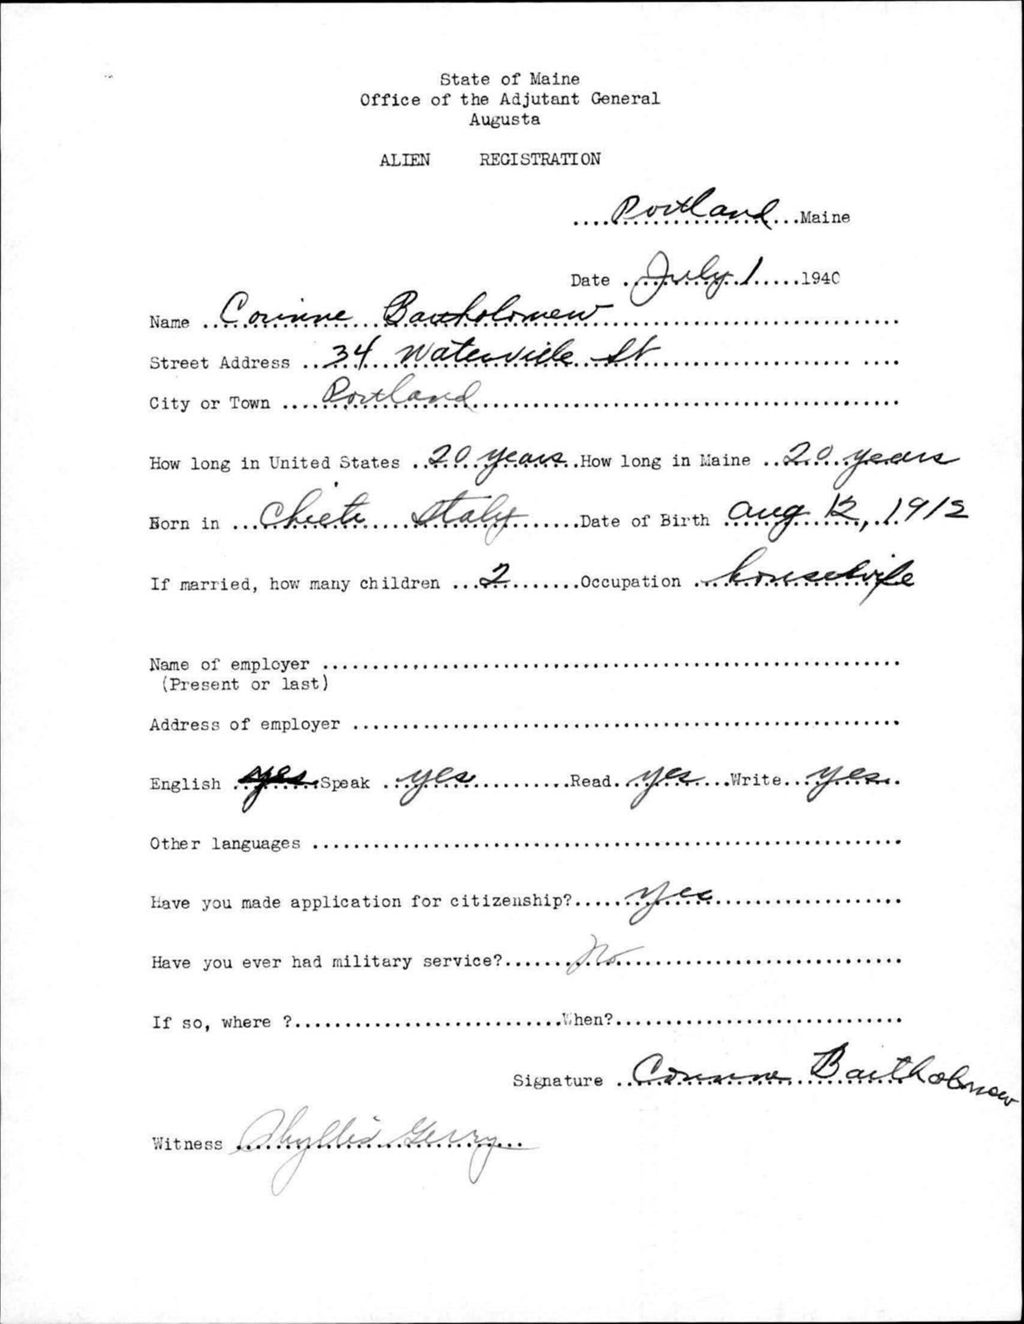 State of Maine
Office of the Adjutant General
Augusta
ALIEN REGISTRATION
....Portland...Maine
Date ..July 1.....1940
Name ..Corinne Bartholomew..............................
Street Address ..34 Waterville St...........................
City or Town ....Portland..........................................
How long in United States ..20 years..How long in Maine ..20 years
Born in ...Chieti Italy.......Date of Birth Aug 12, 1912
If married, how many children ...2........Occupation ..housewife
Name of employer ..........................................................
(Present or last)
Address of employer .......................................................
English yes.Speak ..yes...........Read..yes...Write...yes..
Other languages ...........................................................
Have you made application for citizenship?.....yes...................
Have you ever had military service?.......No............................
If so, where ?...........................When?.............................
Signature ..Corinne Bartholomew
Witness Phyllis Gerry...